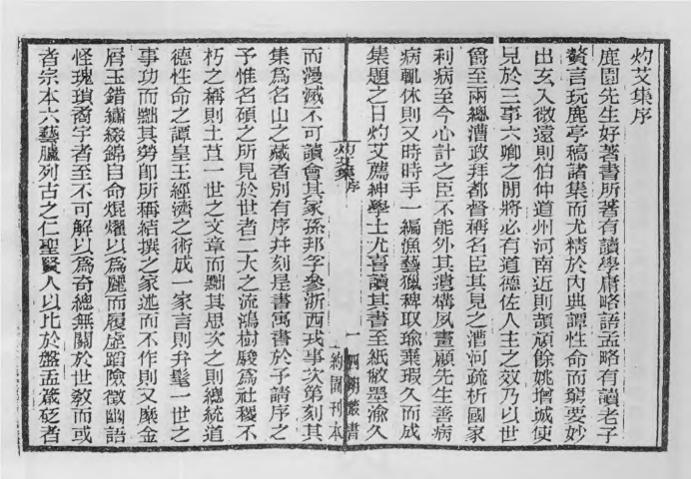 灼艾集序
鹿園先生好著書所著有讀學庸略語孟略有讀老子
贅言玩鹿亭稿諸集而尤精於內典譚性命而窮要妙
出玄入微遠則伯仲道州河南近則頡頏餘姚增城使
見於三事六卿之閒將必有道德佐人主之效乃以世
爵至兩總漕政拜都督稱名臣其見之漕河疏析國家
利病至今心計之臣不能外其遺構夙畫顧先生善病
病輒休則又時時手一編漁藝獵稗取瑜棄瑕久而成
集題之日灼艾薦紳學士尤喜讀其書至紙敝墨渝久
灼艾集 序
一
四明叢書
約園刊本
而漫滅不可讀會其家孫邦孚參浙西戎事次第刻其
集爲名山之藏者別有序幷刻是書寓書於予請序之
予惟名碩之所見於世者二大之流鴻樹駿爲社稷不
朽之稱則土苴一世之文章而黜其思次之則總統道
德性命之譚皇王經濟之術成一家言則弁髦一世之
事功而黜其勞卽所稱結撰之家述而不作則又糜金
屑玉錯繡綴錦自命焜燿以爲麗而履崖蹈險徵幽語
怪瑰瑣裔宇者至不可解以爲奇總無關於世敎而或
者宗本六藝臚列古之仁聖賢人以比於盤盂箴砭者